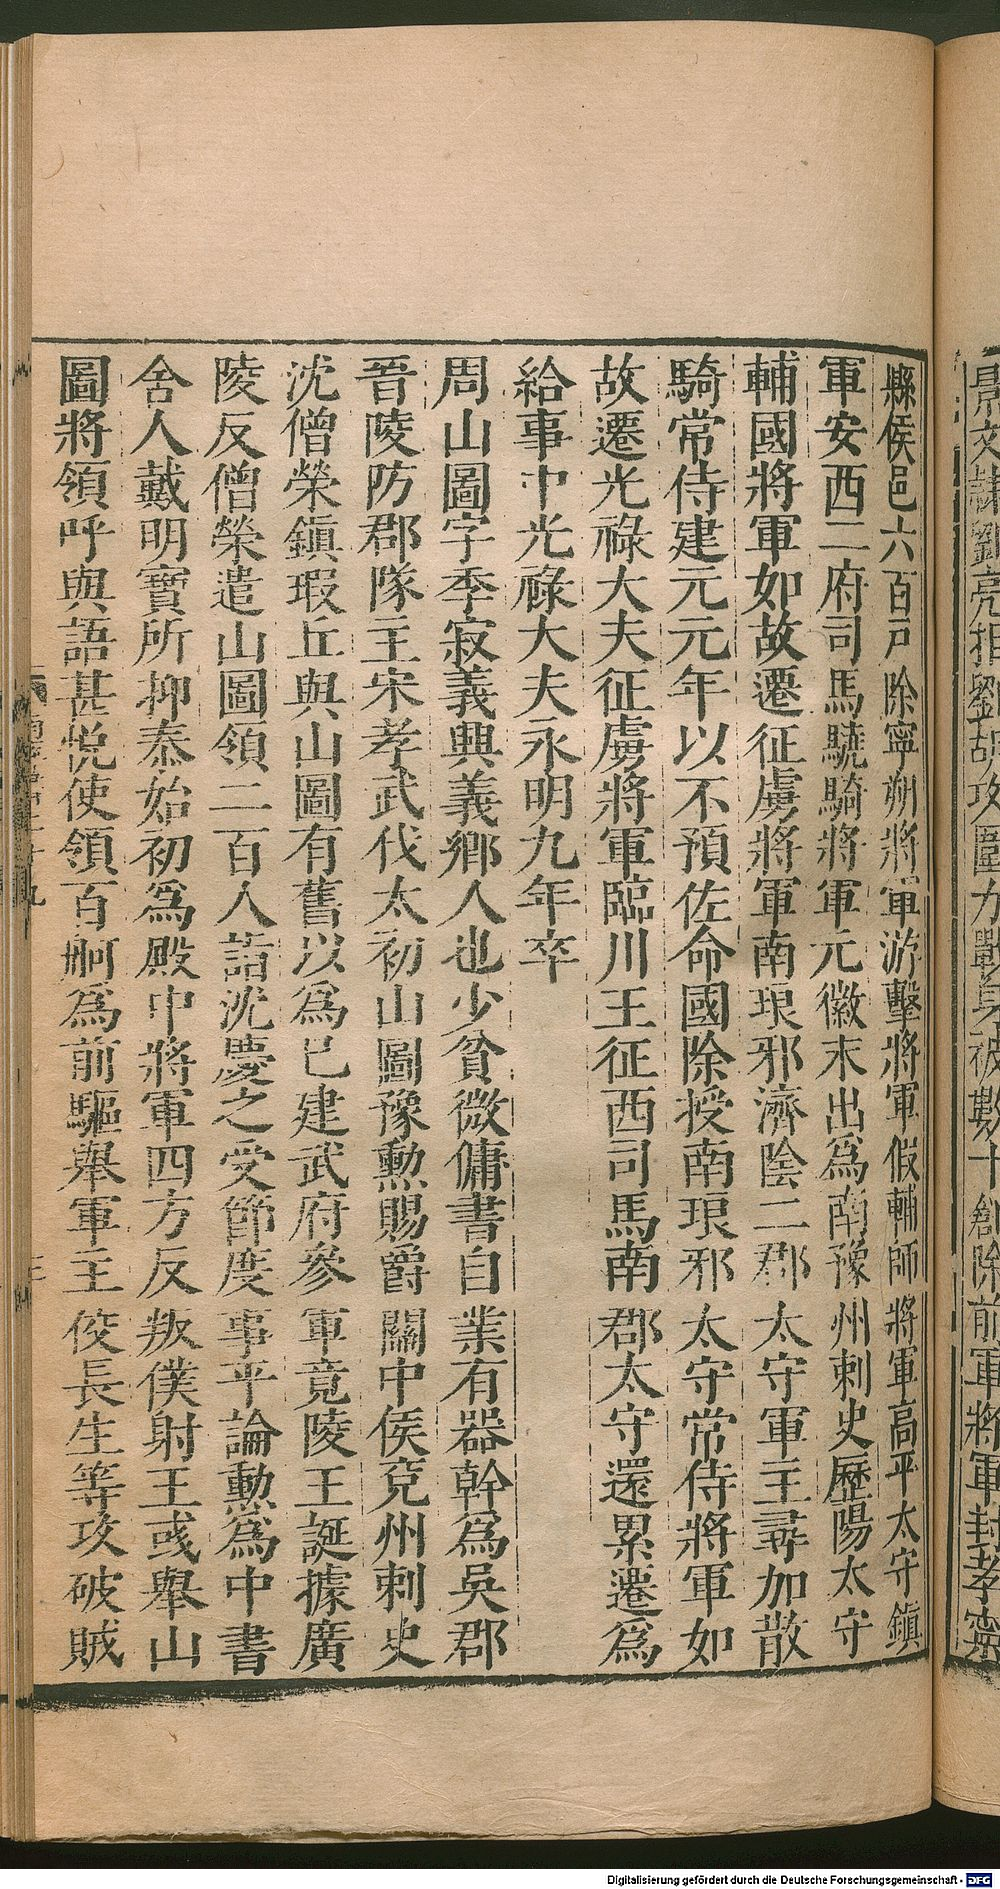 縣侯邑六百戸除寧朔將軍游擊將軍假輔師將軍高平太守鎮
軍安西二府司馬驍騎將軍元徽末出爲南豫州刺史歷陽太守
輔國將軍如故遷征虜將軍南琅邪濟陰二郡太守軍主尋加散
騎常侍建元元年以不預佐命國除授南琅邪太守常侍將軍如
故遷光祿大夫征虜將軍臨川王征西司馬南郡太守還累遷爲
給事中光祿大夫永明九年卒
周山圖字季寂義興義鄉人也少貧微傭書自業有器幹爲吳郡
晉陵防郡隊主宋孝武伐太初山圖豫勳賜爵關中侯兗州刺史
沈僧榮鎮瑕丘與山圖有舊以爲已建武府參軍竟陵王誕據廣
陵反僧榮遣山圖領二百人詣沈慶之受節度事平論勳爲中書
舍人戴明寶所抑泰始初爲殿中將軍四方反叛僕射王彧舉山
圖將領呼與語甚悅使領百舸爲前驅舉軍主佼長生等攻破賊
Digitalisierung gefördert durch die Deutsche Forschungsgemeinschaft - DFG